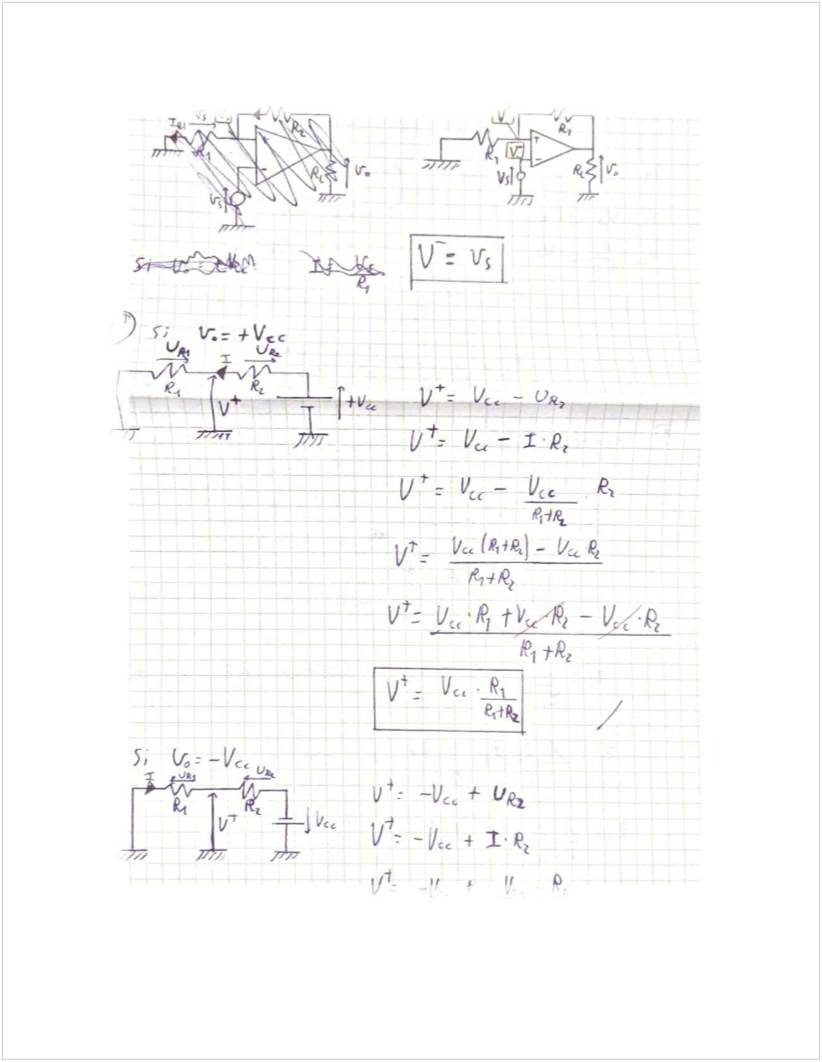 I R1 Vs
R1
R2
RL
Vo
Vs
R1
R2
V-
Vs
RL
Vo
V⁻ = Vs
Si
R1
Si Vo = +Vcc
UR1 I UR2
R1 R2
V⁺ +Vcc
V⁺ = Vcc - UR2
V⁺ = Vcc - I·R2
V⁺ = Vcc - Vcc/(R1+R2) · R2
V⁺ = (Vcc (R1+R2) - Vcc R2)/(R1+R2)
V⁺ = (Vcc·R1 + Vcc·R2 - Vcc·R2)/(R1+R2)
V⁺ = Vcc · R1/(R1+R2)
Si Vo = -Vcc
I UR1 UR2
R1 R2
V⁺ Vcc
V⁺ = -Vcc + UR2
V⁺ = -Vcc + I·R2